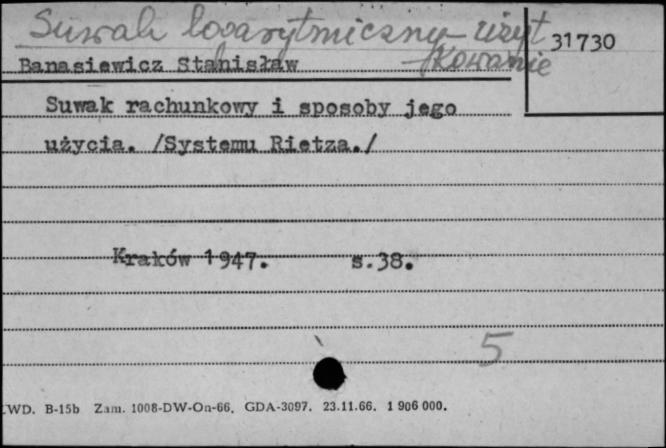 Suwak logarytmiczny – użyt
kowanie
31730
Banasiewicz Stanisław
Suwak rachunkowy i sposoby jego
użycia. /Systemu Rietza./
Kraków 1947. s.38.
5
WD. B-15b Zam. 1008-DW-On-66. GDA-3097. 23.11.66. 1 906 000.